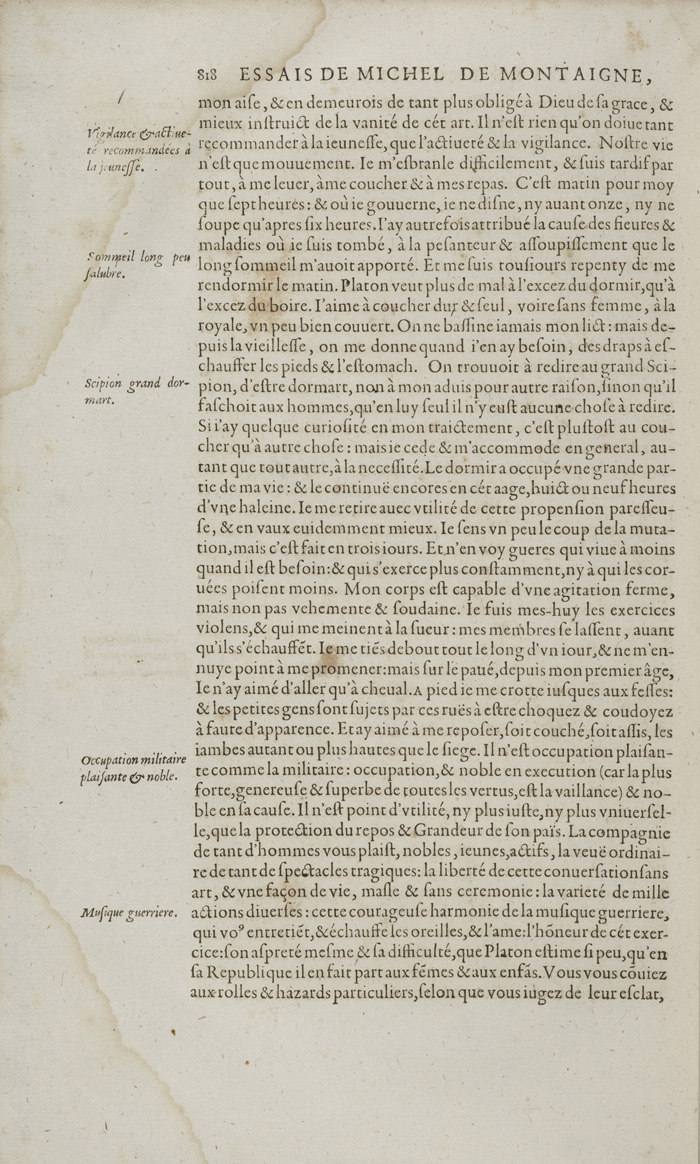 818 ESSAIS DE MICHEL DE MONTAIGNE,
mon aiſe, & en demeurois de tant plus obligé à Dieu de ſa grace, &
mieux inſtruict de la vanité de cét art. Il n'eſt rien qu'on doiue tant
recommander à la ieuneſſe, que l'actiueté & la vigilance. Noſtre vie
n'eſt que mouuement. Ie m'eſbranle difficilement, & ſuis tardif par
tout, à me leuer, à me coucher & à mes repas. C'eſt matin pour moy
que ſept heures: & où ie gouuerne, ie ne diſne, ny auant onze, ny ne
ſoupe qu'apres ſix heures. I'ay autrefois attribué la cauſe des fieures &
maladies où ie ſuis tombé, à la peſanteur & aſſoupiſſement que le
long ſommeil m'auoit apporté. Et me ſuis touſiours repenty de me
rendormir le matin. Platon veut plus de mal à l'excez du dormir, qu'à
l'excez du boire. I'aime à coucher dur & ſeul, voire ſans femme, à la
royale, vn peu bien couuert. On ne baſſine iamais mon lict: mais de-
puis la vieilleſſe, on me donne quand i'en ay beſoin, des draps à eſ-
chauffer les pieds & l'eſtomach. On trouuoit à redire au grand Sci-
pion, d'eſtre dormart, non à mon aduis pour autre raiſon, ſinon qu'il
faſchoit aux hommes, qu'en luy ſeul il n'y euſt aucune choſe à redire.
Si i'ay quelque curioſité en mon traictement, c'eſt pluſtoſt au cou-
cher qu'à autre choſe: mais ie cede & m'accommode en general, au-
tant que tout autre, à la neceſſité. Le dormir a occupé vne grande par-
tie de ma vie: & le continuë encores en cét aage, huict ou neuf heures
d'vne haleine. Ie me retire auec vtilité de cette propenſion pareſſeu-
ſe, & en vaux euidemment mieux. Ie ſens vn peu le coup de la muta-
tion, mais c'eſt fait en trois iours. Et n'en voy gueres qui viue à moins
quand il eſt beſoin: & qui s'exerce plus conſtamment, ny à qui les cor-
uées poiſent moins. Mon corps eſt capable d'vne agitation ferme,
mais non pas vehemente & ſoudaine. Ie fuis mes-huy les exercices
violens, & qui me meinent à la ſueur: mes membres ſe laſſent, auant
qu'ils s'échauffẽt. Ie me tiẽs debout tout le long d'vn iour, & ne m'en-
nuye point à me promener: mais ſur le paué, depuis mon premier âge,
Ie n'ay aimé d'aller qu'à cheual. A pied ie me crotte iuſques aux feſſes:
& les petites gens ſont ſujets par ces ruës à eſtre choquez & coudoyez
à faute d'apparence. Et ay aimé à me repoſer, ſoit couché, ſoit aſſis, les
iambes autant ou plus hautes que le ſiege. Il n'eſt occupation plaiſan-
te comme la militaire: occupation, & noble en execution (car la plus
forte, genereuſe & ſuperbe de toutes les vertus, eſt la vaillance) & no-
ble en ſa cauſe. Il n'eſt point d'vtilité, ny plus iuſte, ny plus vniuerſel-
le, que la protection du repos & Grandeur de ſon païs. La compagnie
de tant d'hommes vous plaiſt, nobles, ieunes, actifs, la veuë ordinai-
re de tant de ſpectacles tragiques: la liberté de cette conuerſation ſans
art, & vne façon de vie, maſle & ſans ceremonie: la varieté de mille
actions diuerſes: cette courageuſe harmonie de la muſique guerriere,
qui voꝰ entretiẽt, & échauffe les oreilles, & l'ame: l'hõneur de cét exer-
cice: ſon aſpreté meſme & ſa difficulté, que Platon eſtime ſi peu, qu'en
ſa Republique il en fait part aux fẽmes & aux enfãs. Vous vous cõuiez
aux rolles & hazards particuliers, ſelon que vous iugez de leur eſclat,
Vigilance & actiue-
té recommandées à
la jeuneſſe.
Sommeil long peu
ſalubre.
Scipion grand dor-
mart.
Occupation militaire
plaiſante & noble.
Muſique guerriere.